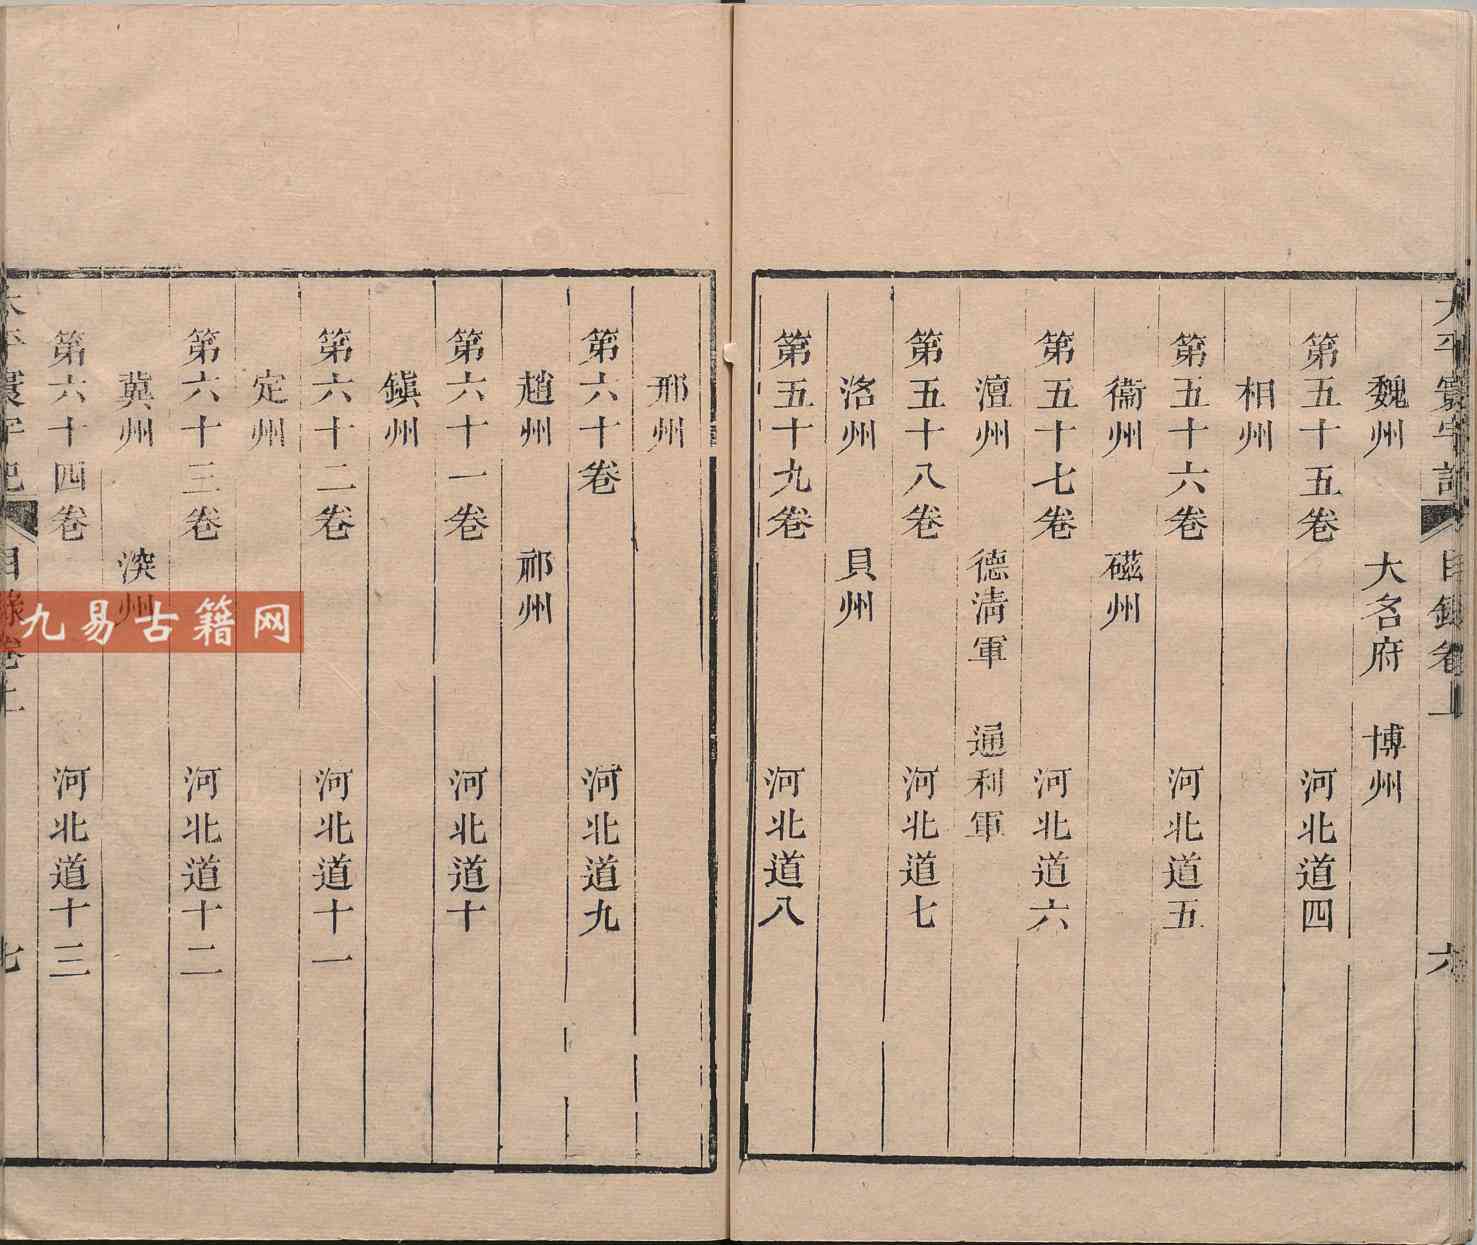 太平寰宇記 目録卷上 六
魏州 大名府 博州
第五十五卷 河北道四
相州
第五十六卷 河北道五
衞州 磁州
第五十七卷 河北道六
澶州 德淸軍 通利軍
第五十八卷 河北道七
洺州 貝州
第五十九卷 河北道八
邢州
第六十卷 河北道九
趙州 祁州
第六十一卷 河北道十
鎭州
第六十二卷 河北道十一
定州
第六十三卷 河北道十二
冀州 深州
第六十四卷 河北道十三
太平寰宇記 目録卷上 七
九易古籍网